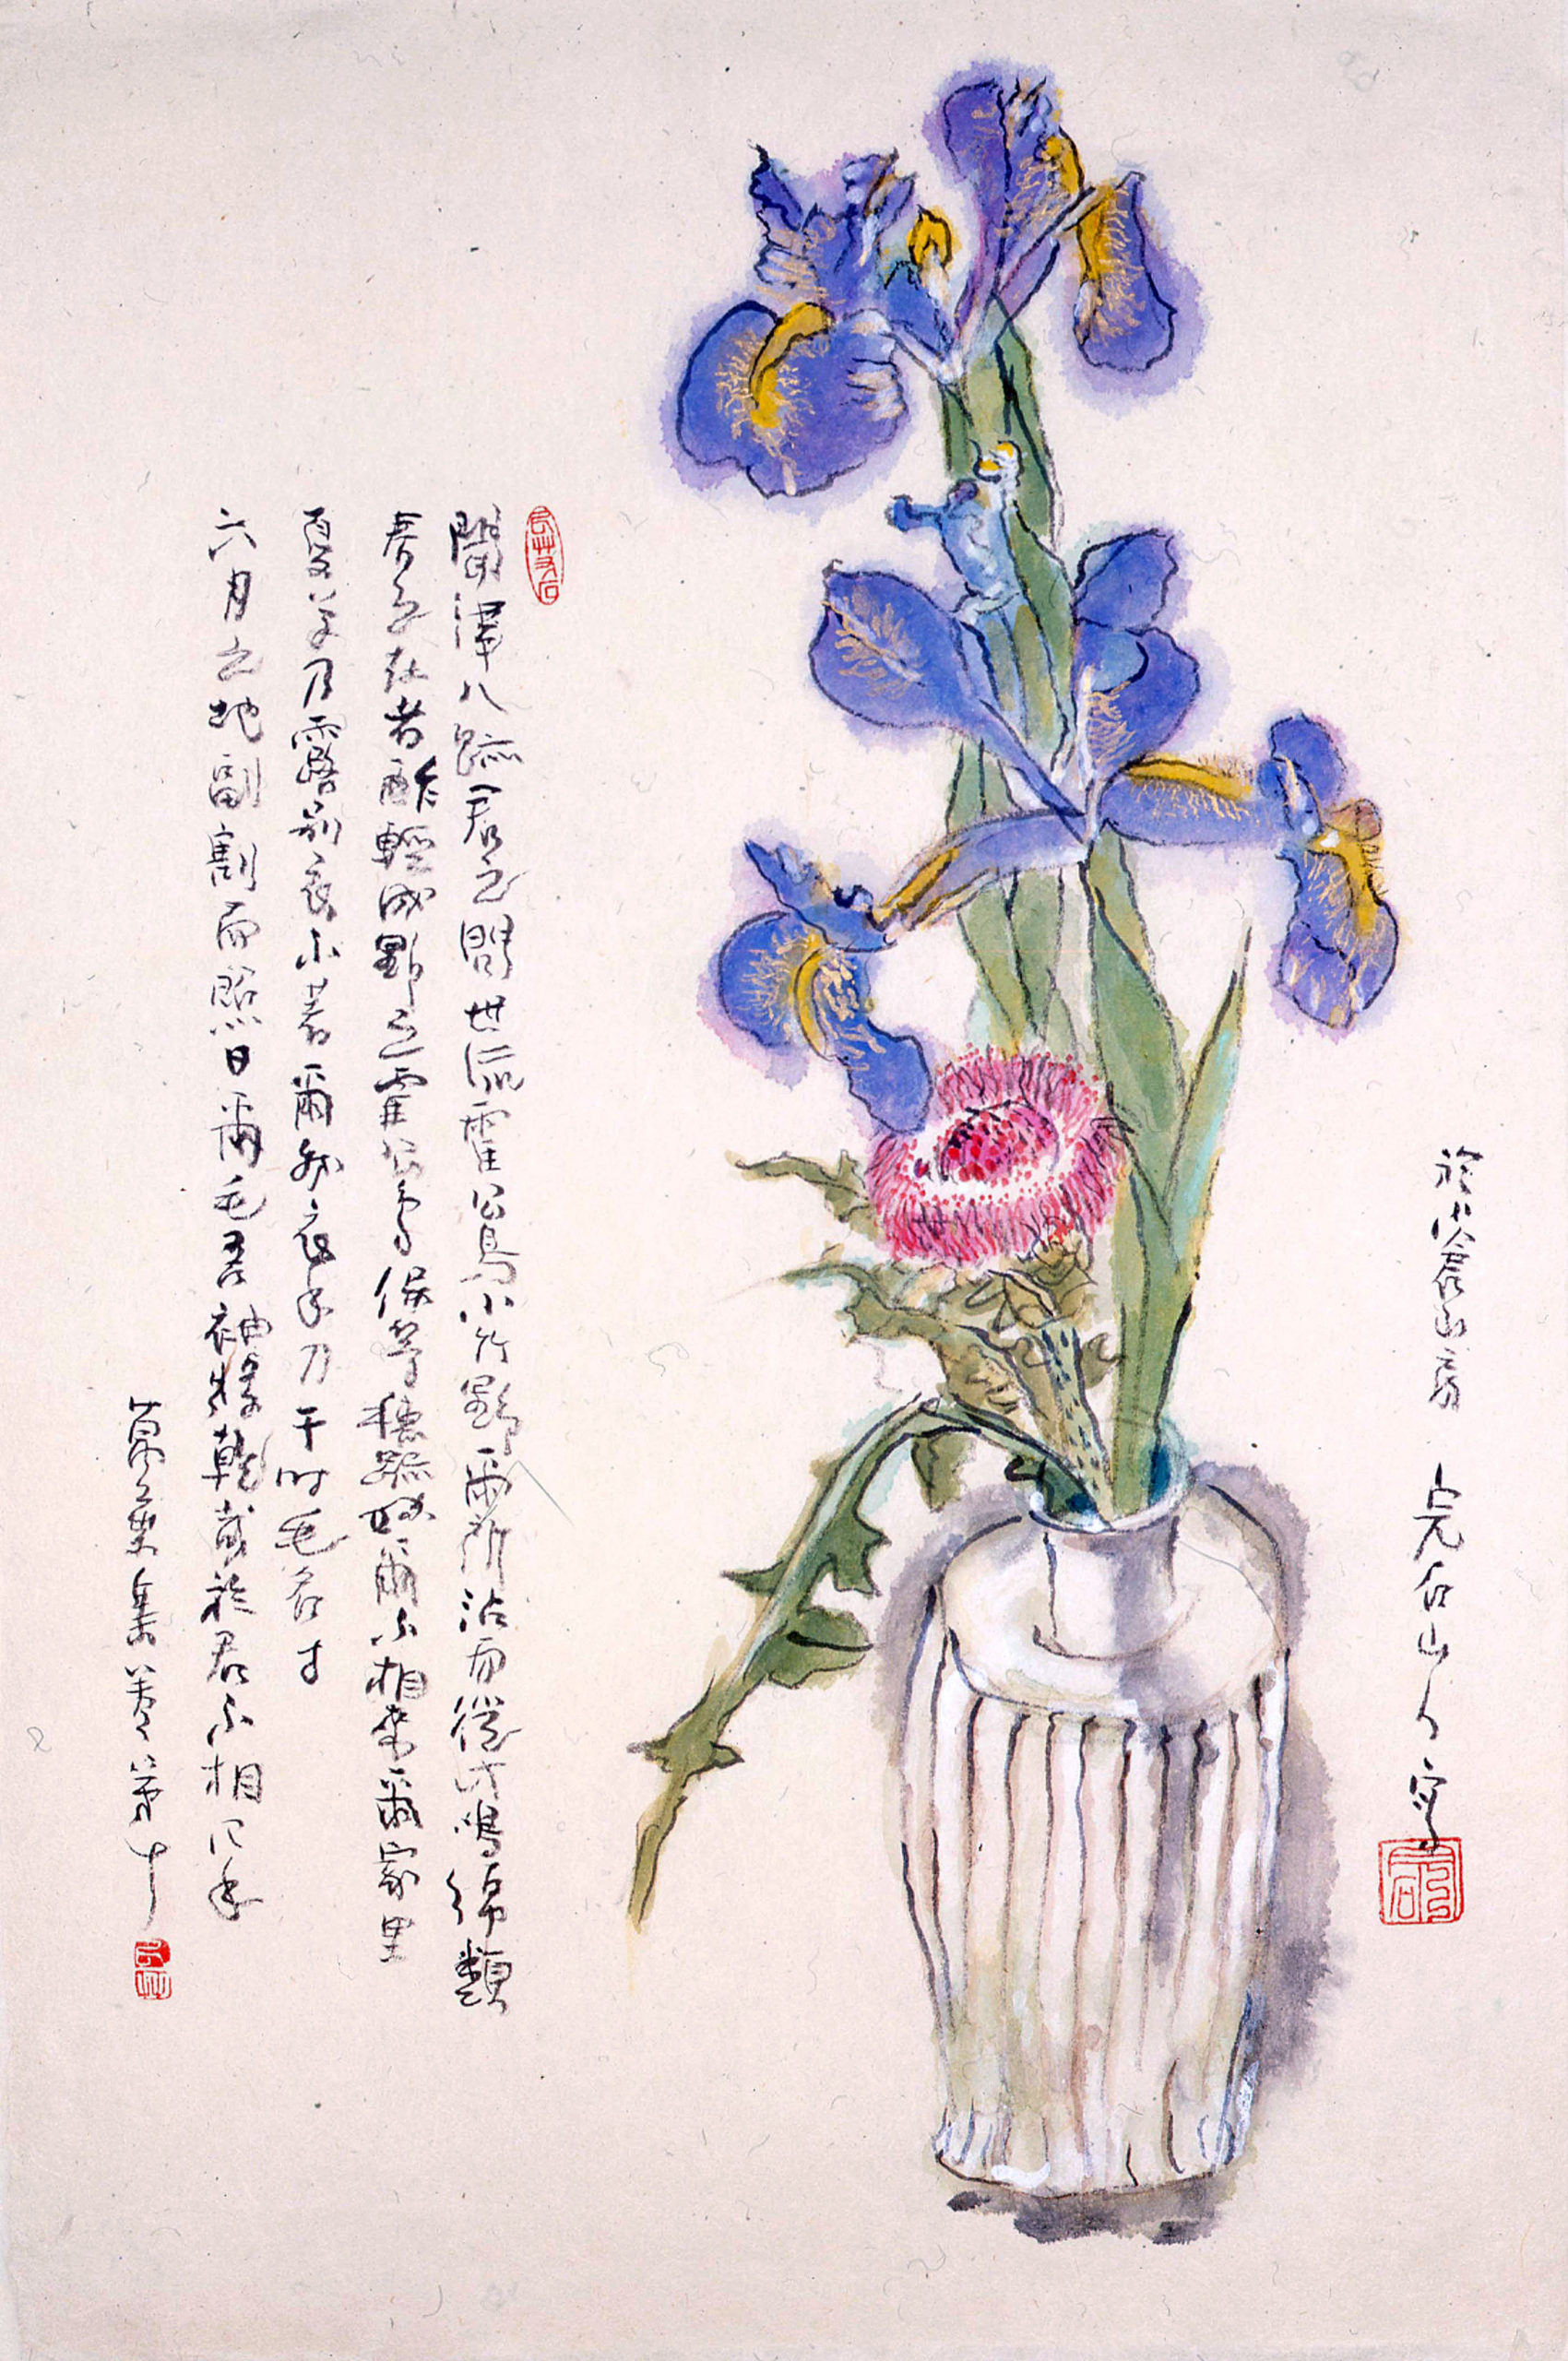 於小倉山房 山人寫
聞津八跡君之問世流霍公鳥小竹野爾所沾而從此鳴綿類
春之在者酢輕成野之霍公鳥保等穗跡妹爾不相來爾家里
夏草乃露別衣不著爾我衣手乃干時毛名寸
六月之地副割而照日爾毛吾袖將乾哉於君不相四手
萬葉集卷第十